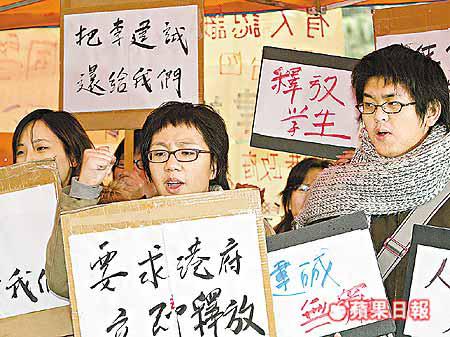 把李建誠
還給我們
釋放
学生
我們
要求港府
立即釋放
建誠
無罪
人
蘋果日報